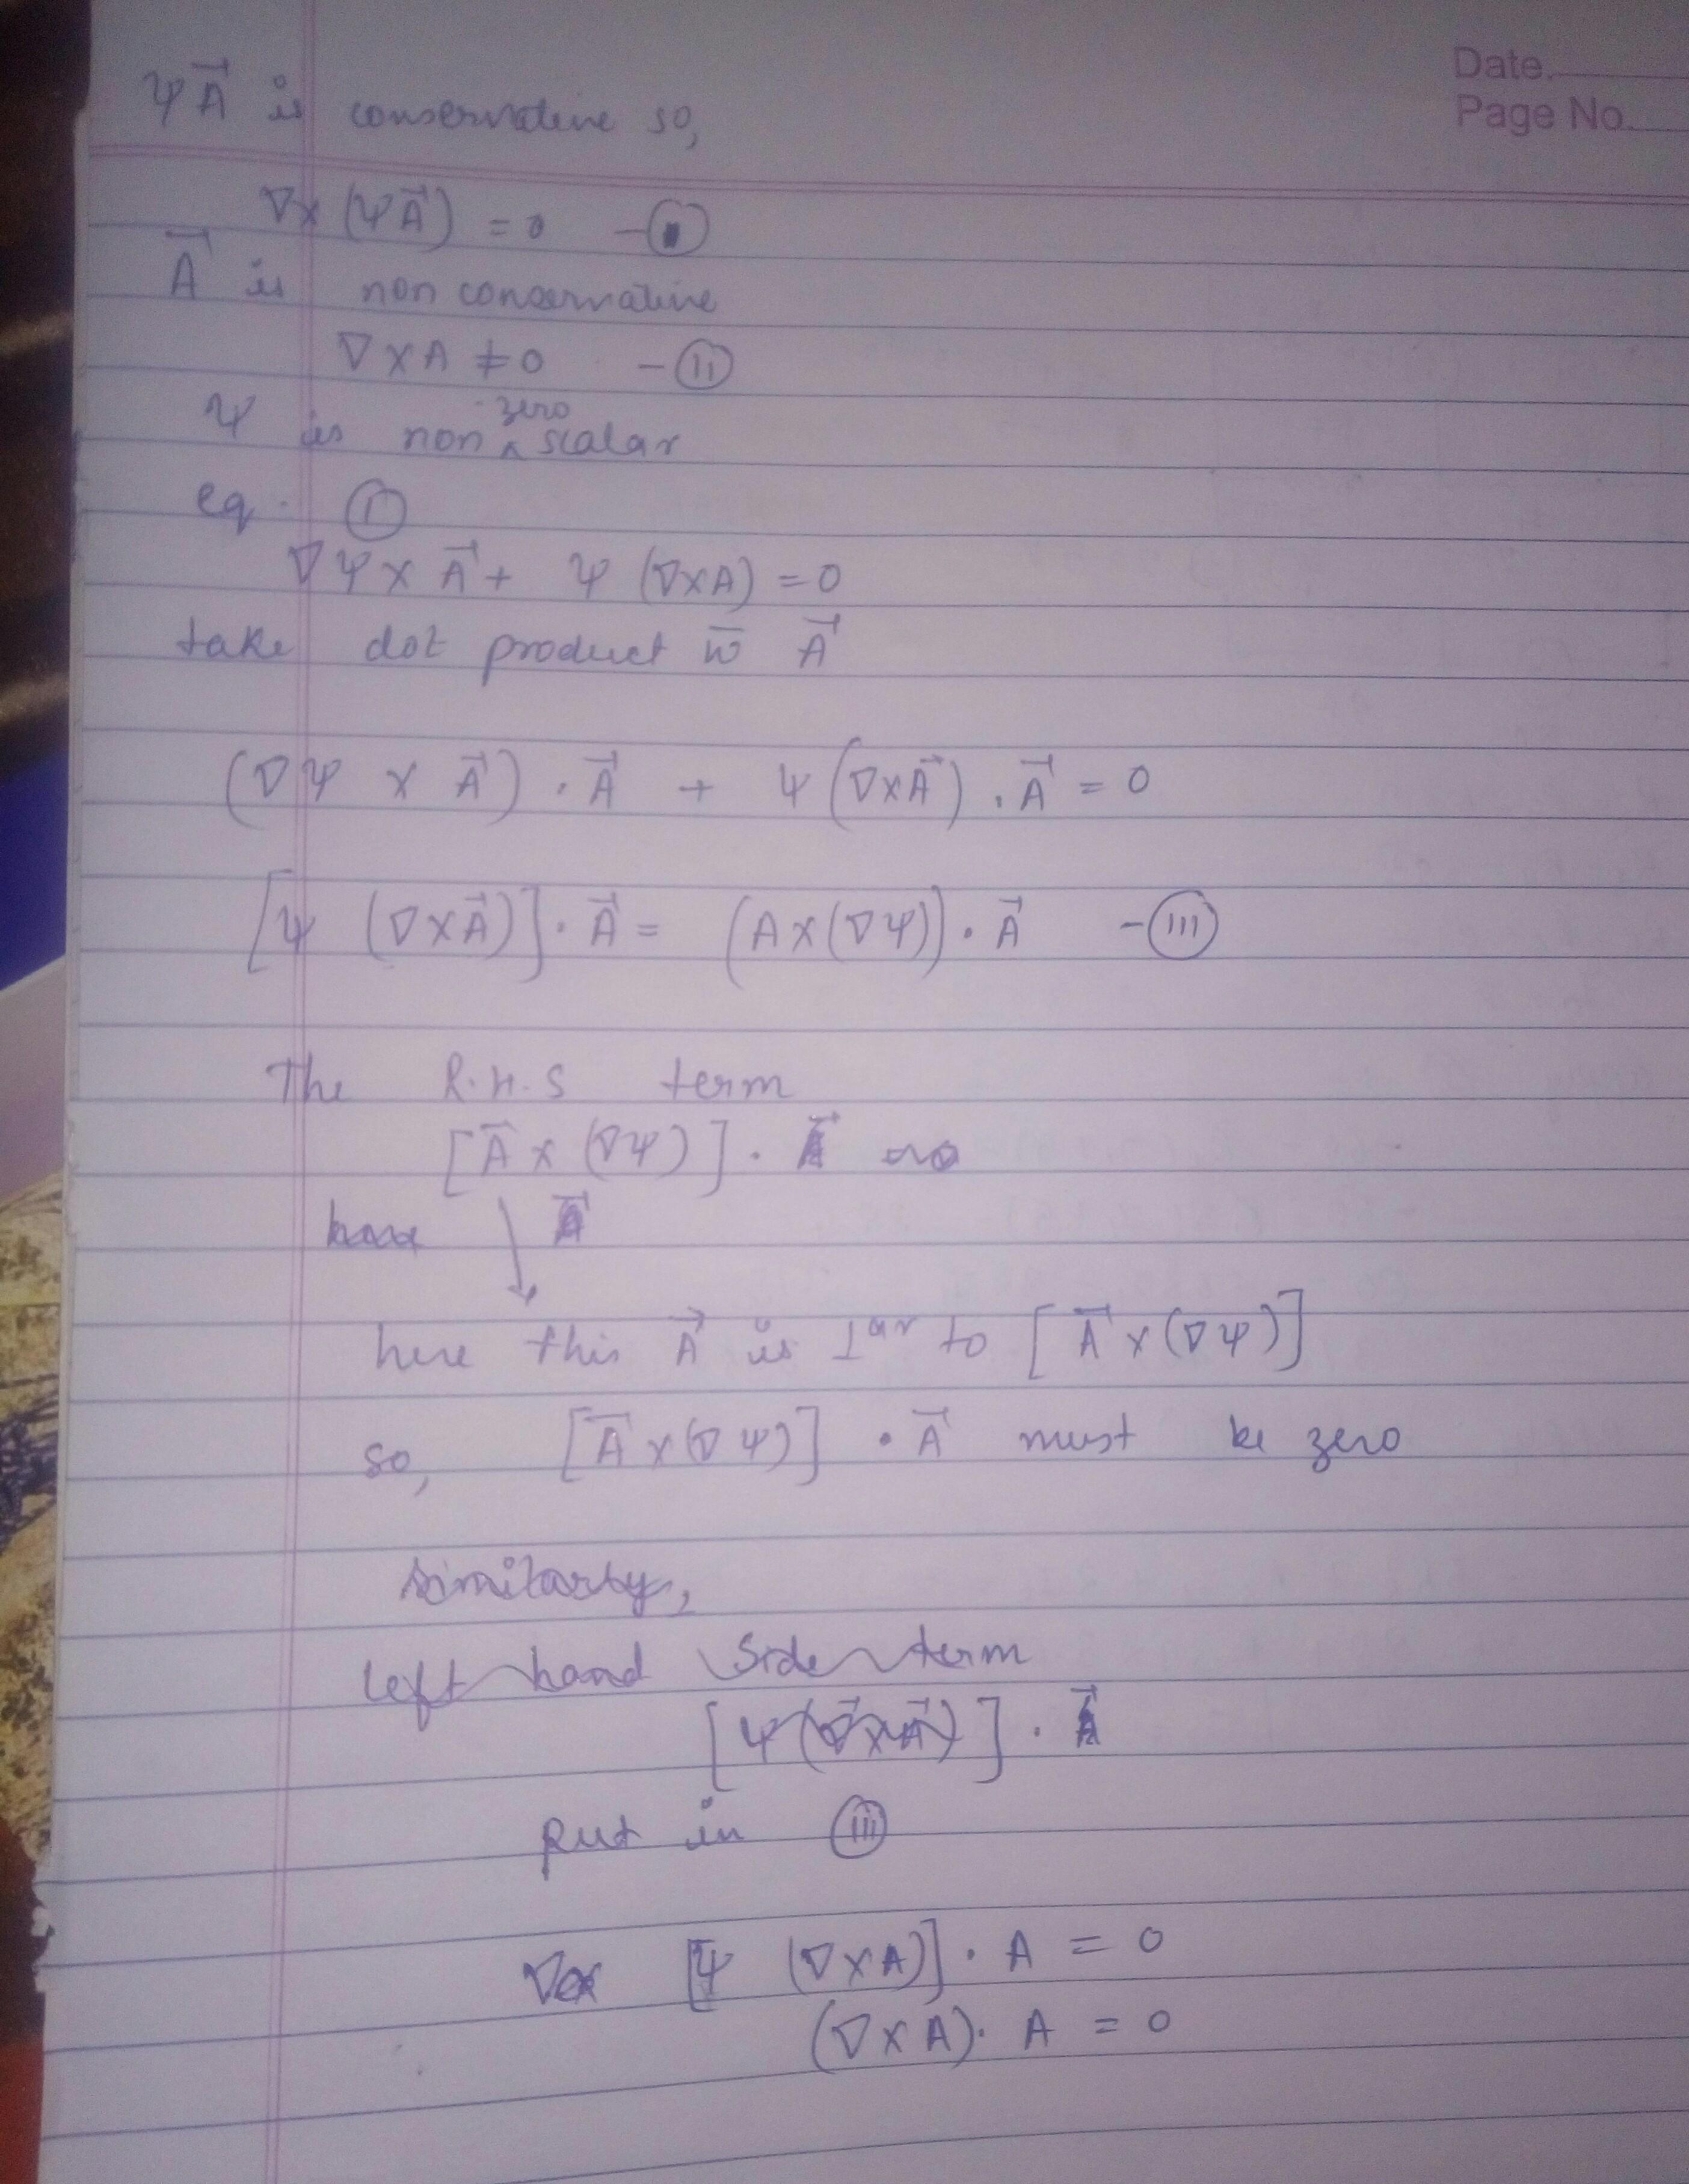 Date.
Page No.
ψA⃗ is conservative so,
∇×(ψA⃗) = 0 -①
A⃗ is non conservative
∇×A ≠ 0 -⑪
ψ is non zero scalar
eq. ①
∇ψ×A⃗ + ψ(∇×A) = 0
take dot product w̄ A⃗
(∇ψ × A⃗) . A⃗ + ψ(∇×A⃗) . A⃗ = 0
[ψ (∇×A⃗)] . A⃗ = (A×(∇ψ)) . A⃗ -(III)
The R.H.S term
[A⃗ × (∇ψ)] . A⃗
A⃗
here this A⃗ is ⊥ar to [A⃗ × (∇ψ)]
so, [A⃗ × (∇ψ)] . A⃗ must be zero
similarly,
left hand side term
[ψ(∇⃗×A⃗)] . A⃗
put in (III)
[ψ (∇×A)] . A = 0
(∇×A). A = 0